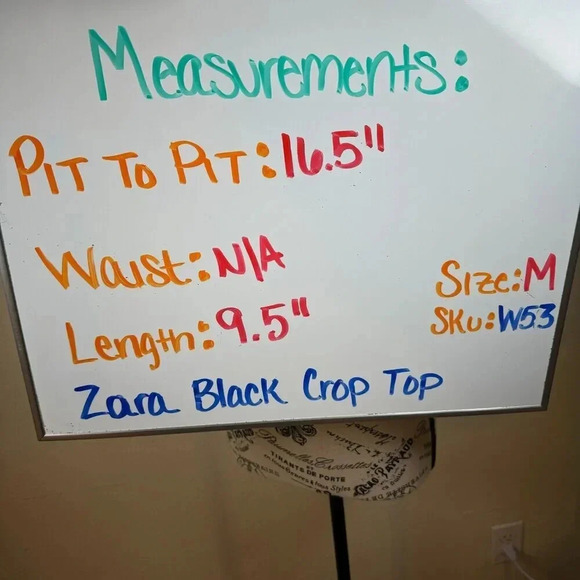 Measurements:
Pit To Pit: 16.5"
Waist: N/A
Size: M
Length: 9.5"
SKU: W53
Zara Black Crop Top
TIRANTS DE PORTE